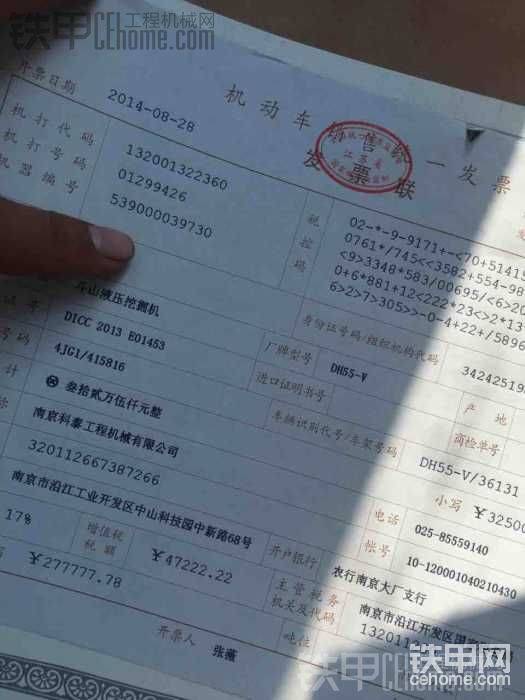 铁甲 工程机械网 Cehome.com
机动车销售统一发票
发票联
江苏省
开票日期 2014-08-28
机打代码 132001322360
机打号码 01299426
机器编号 539000039730
税控码
02-*-9-9171+-<70+51419
0761*/745<<3582+554-98
<9>3348*583/00695/<6>20
0+6*881+12<222*23<>2*13
6>2>7>305>>-0-4+22+/5896
身份证号码/组织机构代码 3424251
斗山液压挖掘机 厂牌型号 DH55-V 产地
证号 DICC 2013 E01453 进口证明书号 商检单号
号码 4JG1/415816 车辆识别代号/车架号码 DH55-V/36131
计 ⊗ 叁拾贰万伍仟元整 小写 ¥32500
称 南京科泰工程机械有限公司 电话 025-85559140
320112667387266 帐号 10-120001040210430
南京市沿江工业开发区中山科技园中新路68号 开户银行 农行南京大厂支行
17% 增值税税额 ¥47222.22 主管税务机关及代码 南京市沿江开发区国
132011
¥277777.78 吨位
开票人 张薇
铁甲 工程机械网 Cehome.com
铁甲网 CEHOME.COM